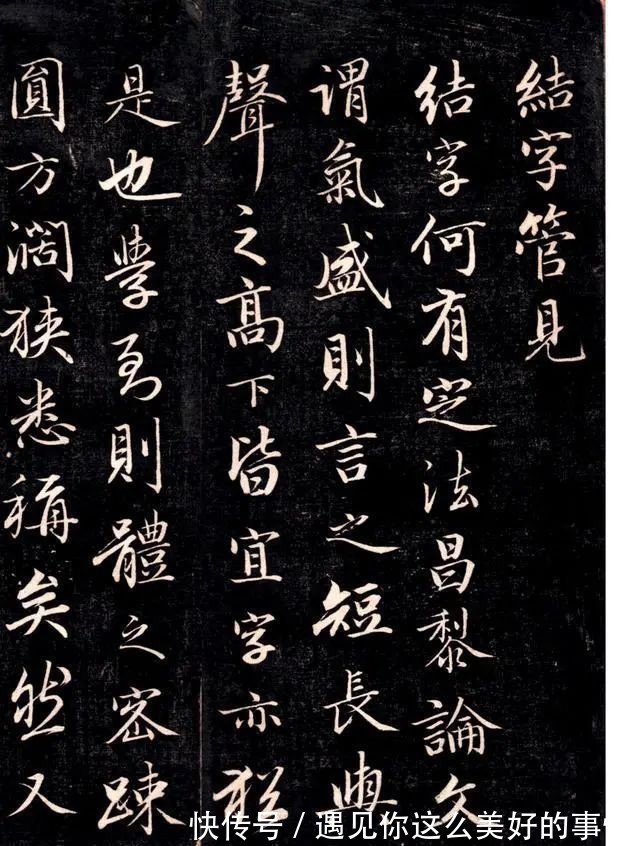 結字管見
結字何有定法昌黎論文
謂氣盛則言之短長與
聲之高下皆宜字亦猶
是也學到則體之密踈
圓方濶狹悉稱矣然又
快传号/遇见你这么美好的事